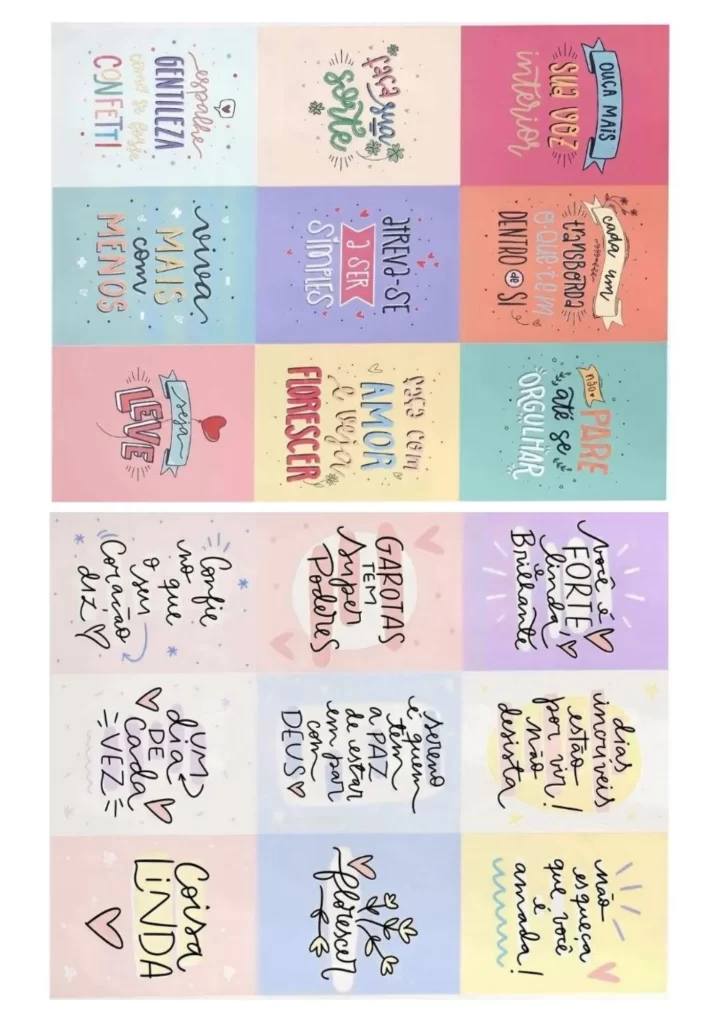 OUÇA MAIS
SUA VOZ
interior
cada um
transborda
o que tem
DENTRO de SI
não
PARE
até se
ORGULHAR
faça sua
sorte
ATREVA-SE
A SER
SIMPLES
faça com
AMOR
e veja
FLORESCER
espalhe
GENTILEZA
como se fosse
CONFETTI
viva
MAIS
com
MENOS
seja
LEVE
você é
FORTE,
linda e
Brilhante
dias
incríveis
estão
por vir!
não
desista
não
esqueça
que você
é
amada!
GAROTAS
TEM
super
Poderes
sereno
é quem
tem
a PAZ
de estar
em par
com
DEUS
florescer
Confie
no que
o seu
Coração
diz
UM
dia
DE
Cada
VEZ
Coisa
LINDA